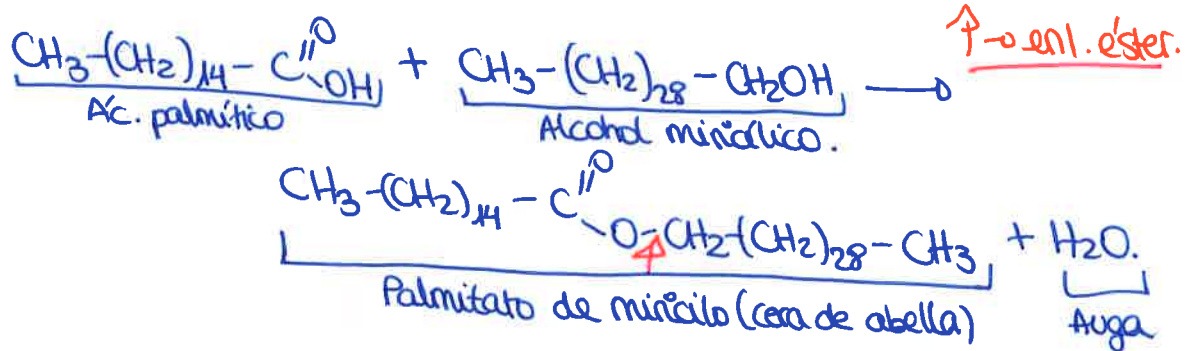 CH₃-(CH₂)₁₄-C(=O)-OH + CH₃-(CH₂)₂₈-CH₂OH →
↑→ enl. éster.
Ác. palmítico
Alcohol miricílico.
CH₃-(CH₂)₁₄-C(=O)-O-CH₂-(CH₂)₂₈-CH₃ + H₂O.
Palmitato de miricilo (cera de abella)
Auga